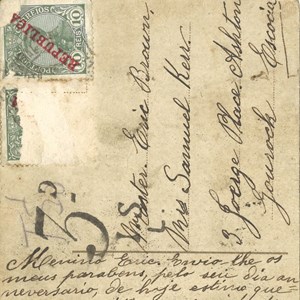 CORREIOS
10 REIS 10
REPUBLICA
Master Eric Brown
Miss Samuel Kerr
3 George Place Ashton
Gourock Escocia
Menino Eric Envio-lhe os
meus parabens, pelo seu dia an
neversario, de hoje estimo que